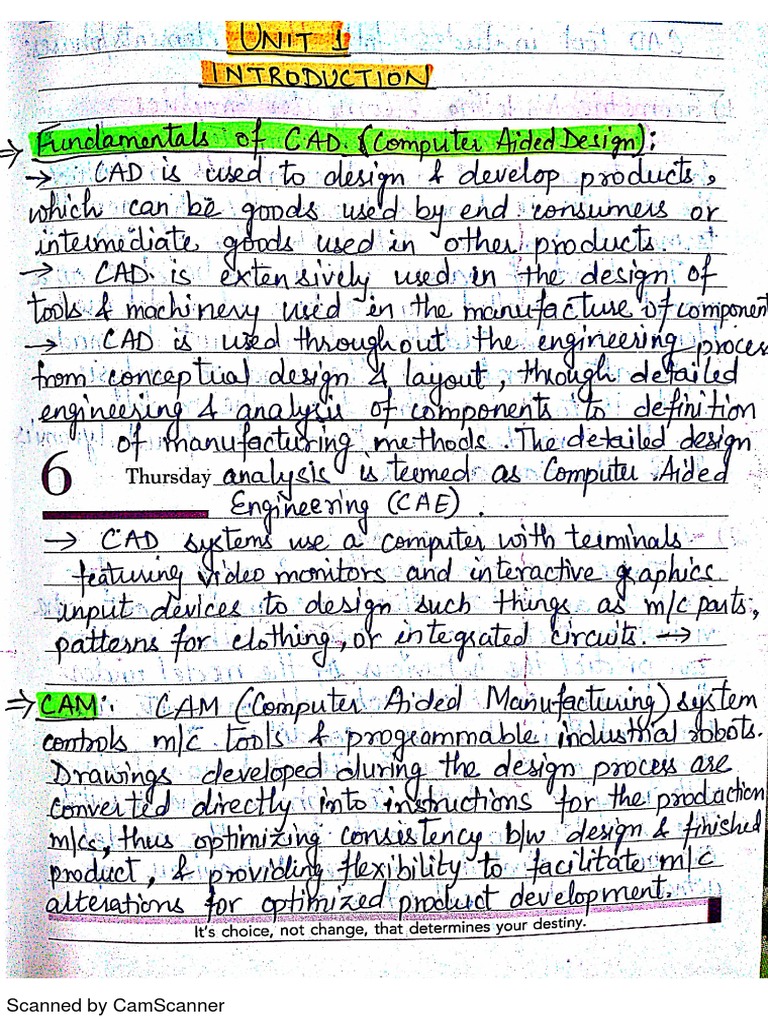 UNIT 1
INTRODUCTION
⇒ Fundamentals of CAD (Computer Aided Design):
→ CAD is used to design & develop products,
which can be goods used by end consumers or
intermediate goods used in other products.
→ CAD is extensively used in the design of
tools & machinery used in the manufacture of component
→ CAD is used throughout the engineering proces
from conceptual design & layout, through detailed
engineering & analysis of components to definition
of manufacturing methods. The detailed design
6 Thursday analysis is termed as Computer Aided
Engineering (CAE).
→ CAD systems use a computer with terminals
featuring video monitors and interactive graphics
input devices to design such things as m/c parts,
patterns for clothing, or integrated circuits. →
⇒ CAM: CAM (Computer Aided Manufacturing) system
controls m/c tools & programmable industrial robots.
Drawings developed during the design process are
converted directly into instructions for the production
m/cs, thus optimizing consistency b/w design & finished
product, & providing flexibility to facilitate m/c
alterations for optimized product development.
It's choice, not change, that determines your destiny.
Scanned by CamScanner